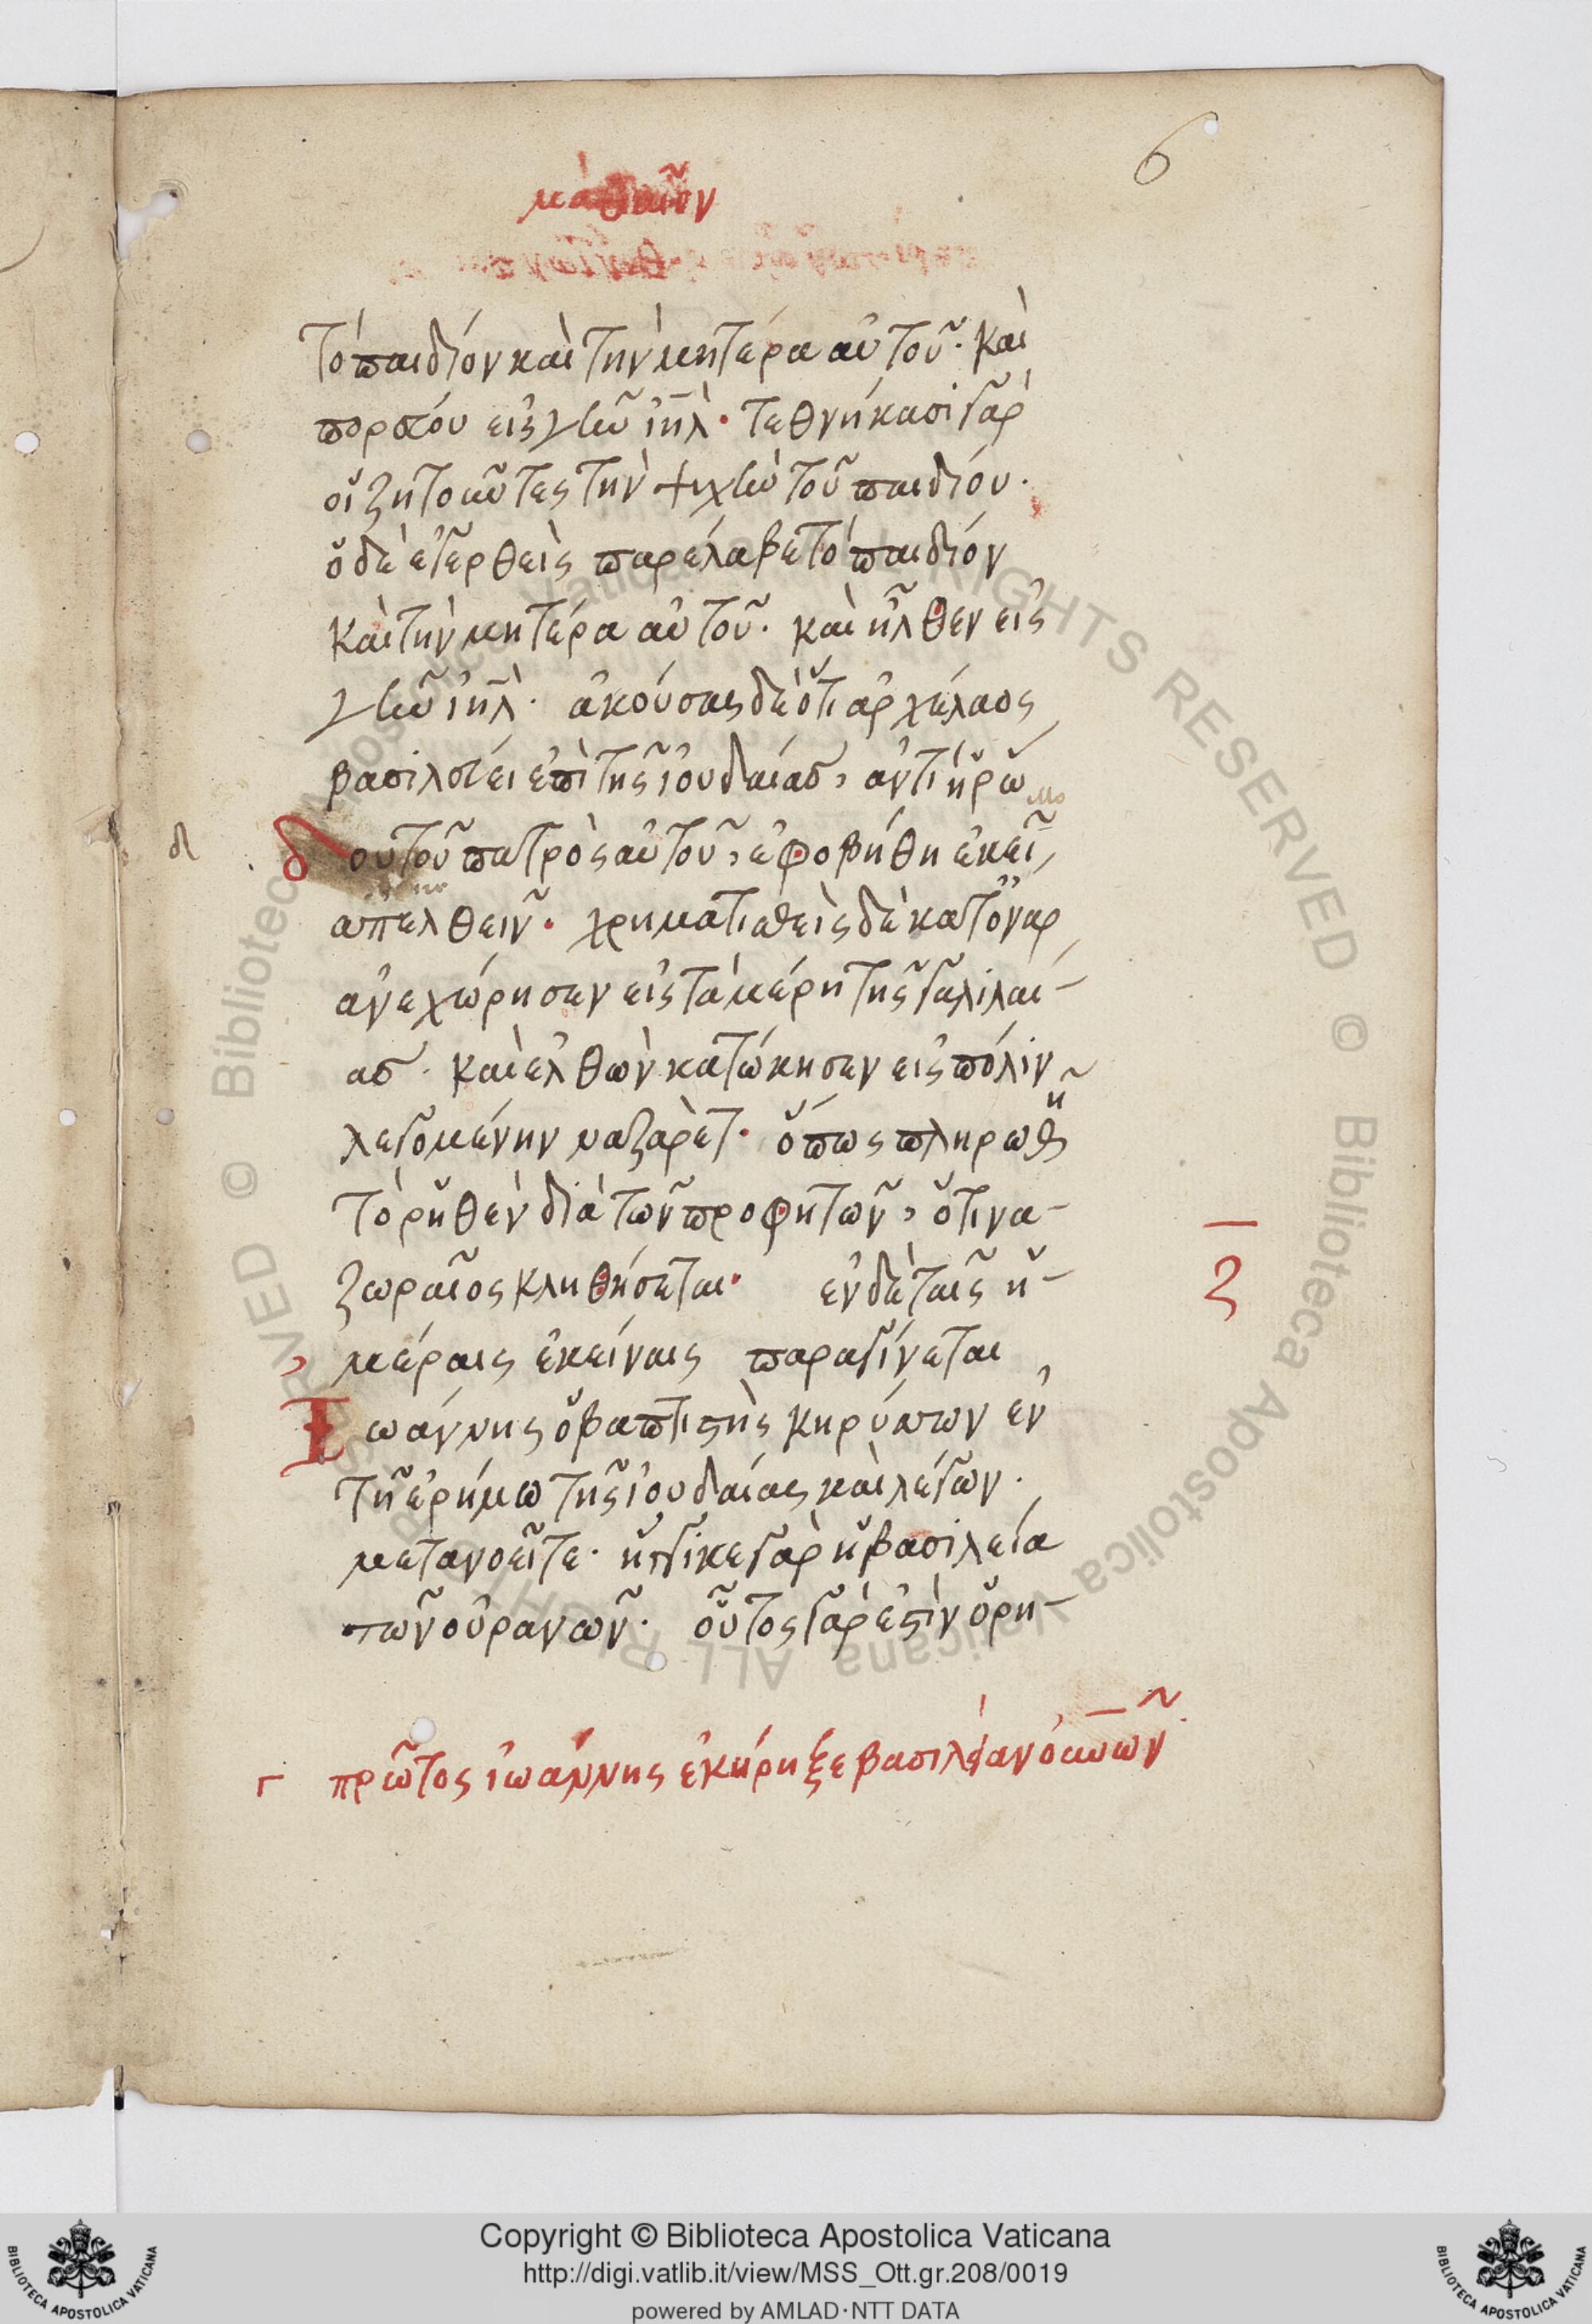 6
ματθαῖον
τὸ παιδίον καὶ τὴν μητέρα αὐτοῦ· καὶ
πορεύου εἰς γῆν ἰηλ· τεθνήκασι γὰρ
οἱ ζητοῦντες τὴν ψυχὴν τοῦ παιδίου·
ὁ δὲ ἐγερθεὶς παρέλαβε τὸ παιδίον
καὶ τὴν μητέρα αὐτοῦ· καὶ ἦλθεν εἰς
γῆν ἰηλ· ἀκούσας δὲ ὅτι ἀρχέλαος
βασιλεύει ἐπὶ τῆς ἰουδαίας, ἀντὶ ἡρώ
δ
δου τοῦ πατρὸς αὐτοῦ, ἐφοβήθη ἐκεῖ
ἀπελθεῖν· χρηματισθεὶς δὲ κατ ὄναρ
ἀνεχώρησεν εἰς τὰ μέρη τῆς γαλιλαί-
ας· καὶ ἐλθὼν κατώκησεν εἰς πόλιν
λεγομένην ναζαρέτ· ὅπως πληρωθῆ
τὸ ῥηθὲν διὰ τῶν προφητῶν, ὅτι να-
ζωραῖος κληθήσεται· ἐν δὲ ταῖς ἡ-
ζ
μέραις ἐκείναις παραγίνεται
Ἰωάννης ὁ βαπτιστὴς κηρύττων ἐν
τῇ ἐρήμω τῆς ἰουδαίας καὶ λέγων·
μετανοεῖτε· ἤγγικε γὰρ ἡ βασιλεία
τῶν οὐρανῶν· οὗτος γάρ ἐστιν ὁ ρη-
γ πρῶτος ἰωάννης ἐκήρηξε βασιλείαν οὐνῶν
Copyright © Biblioteca Apostolica Vaticana
http://digi.vatlib.it/view/MSS_Ott.gr.208/0019
powered by AMLAD·NTT DATA
BIBLIOTECA APOSTOLICA VATICANA
BIBLIOTECA APOSTOLICA VATICANA
© Biblioteca Apostolica Vaticana ALL RIGHTS RESERVED © Biblioteca Apostolica Vaticana ALL RIGHTS RESERVED